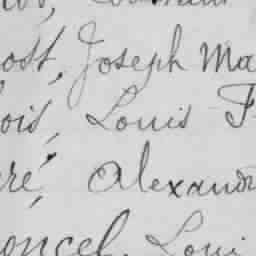 ost, Joseph Ma
ois, Louis F
ré, Alexand
oncel, Loui